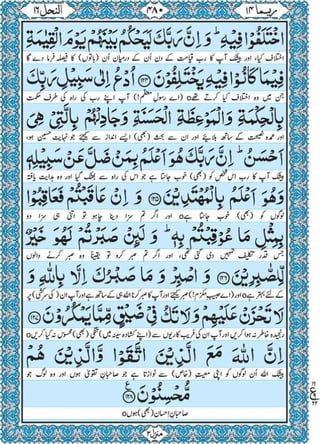 ربما ١٤ ٤٨٠ النحل ١٦
اخْتَلَفُوْا فِيْهِ ؕ وَ اِنَّ رَبَّكَ لَيَحْكُمُ بَيْنَهُمْ يَوْمَ الْقِيٰمَةِ
اختلاف کیا، اور بیشک آپ کا رب قیامت کے دن اُن کے درمیان اُن (باتوں) کا فیصلہ فرما دے گا
فِيْمَا كَانُوْا فِيْهِ يَخْتَلِفُوْنَ ﴿۱۲۴﴾ اُدْعُ اِلٰى سَبِيْلِ رَبِّكَ
جن میں وہ اختلاف کیا کرتے تھے o (اے رسولِ معظّم!) آپ اپنے رب کی راہ کی طرف حکمت
بِالْحِكْمَةِ وَ الْمَوْعِظَةِ الْحَسَنَةِ وَ جَادِلْهُمْ بِالَّتِيْ هِيَ
اور عمدہ نصیحت کے ساتھ بلائیے اور ان سے بحث (بھی) ایسے انداز سے کیجئے جو نہایت حسین ہو،
اَحْسَنُ ؕ اِنَّ رَبَّكَ هُوَ اَعْلَمُ بِمَنْ ضَلَّ عَنْ سَبِيْلِهٖ
بیشک آپ کا رب اس شخص کو (بھی) خوب جانتا ہے جو اس کی راہ سے بھٹک گیا اور وہ ہدایت یافتہ
وَ هُوَ اَعْلَمُ بِالْمُهْتَدِيْنَ ﴿۱۲۵﴾ وَ اِنْ عَاقَبْتُمْ فَعَاقِبُوْا
لوگوں کو (بھی) خوب جانتا ہے o اور اگر تم سزا دینا چاہو تو اتنی ہی سزا دو
بِمِثْلِ مَا عُوْقِبْتُمْ بِهٖ ؕ وَ لَئِنْ صَبَرْتُمْ لَهُوَ خَيْرٌ
جس قدر تکلیف تمہیں دی گئی تھی، اور اگر تم صبر کرو تو یقیناً وہ صبر کرنے والوں
لِّلصّٰبِرِيْنَ ﴿۱۲۶﴾ وَ اصْبِرْ وَ مَا صَبْرُكَ اِلَّا بِاللّٰهِ وَ
کے لئے بہتر ہے o اور (اے حبیبِ مکرّم!) صبر کیجئے اور آپ کا صبر کرنا اللہ ہی کے ساتھ ہے اور آپ ان (کی سرکشی) پر
لَا تَحْزَنْ عَلَيْهِمْ وَ لَا تَكُ فِيْ ضَيْقٍ مِّمَّا يَمْكُرُوْنَ ﴿۱۲۷﴾
رنجیدہ خاطر نہ ہوا کریں اور آپ ان کی فریب کاریوں سے (اپنے کشادہ سینہ میں) تنگی (بھی) محسوس نہ کیا کریں o
اِنَّ اللّٰهَ مَعَ الَّذِيْنَ اتَّقَوْا وَّ الَّذِيْنَ هُمْ
بیشک اللہ اُن لوگوں کو اپنی معیتِ (خاص) سے نوازتا ہے جو صاحبانِ تقویٰ ہوں اور وہ لوگ جو
مُّحْسِنُوْنَ ﴿۱۲۸﴾
صاحبانِ اِحسان (بھی) ہوں o
منزل ٣